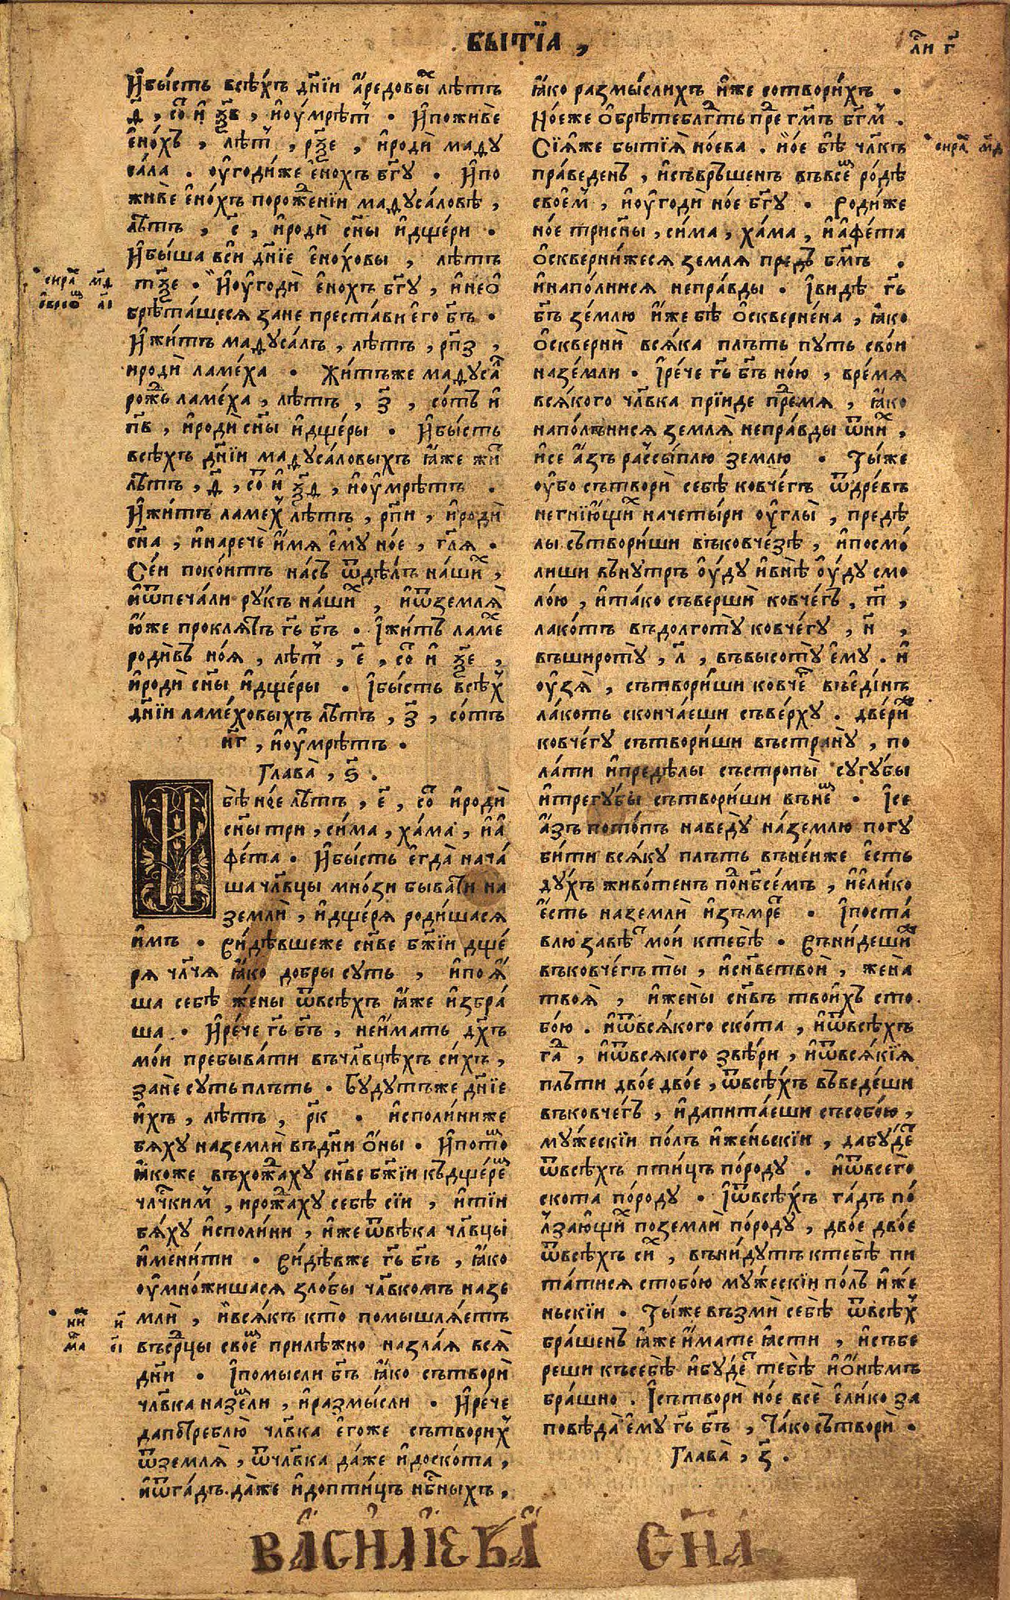 БЫТЇА,
ли҃ г҃
И҆бы́сть всѣ́хъ дні́и а҆редовы́х лѣ́тъ
д҃, со́т и҆ ѯ҃в, и҆оу҆мре́тъ · И҆поживѐ
е҆но́хъ, лѣ́т, р҃ѯе, и҆родѝ маду
са́ла · оу҆годи́же е҆но́хъ бг҃у · И҆по
живѐ е҆но́хъ порожде́нїи мадуса́ловѣ,
лѣ́тъ, с҃, и҆родѝ сн҃ы и҆дще́ри ·
И҆бы́ша всѝ дні҃е е҆но́ховы, лѣ́тъ
т҃ѯе · И҆оу҆годѝ е҆но́хъ бг҃у, и҆нео҆
брѣта́шеся занѐ преста́ви е҆го̀ бг҃ъ ·
И҆жи́тъ мадуса́лъ, лѣ́тъ, рп҃з,
и҆родѝ ламе́ха · Жи́тъже мадуса́л
рождь ламе́ха, лѣ́тъ, з҃, со́тъ и҆
п҃в, и҆родѝ сн҃ы и҆дще́ры · И҆бы́сть
всѣ́хъ дні҃и мадуса́ловыхъ ꙗ҆́же жи́т
лѣ́тъ, д҃, со́т и҆ ѯ҃д, и҆оу҆мре́тъ ·
И҆жи́тъ ламе́х лѣ́тъ, рп҃и, и҆родѝ
сн҃а, и҆наречѐ и҆́мя е҆му̀ но́е, гл҃я ·
Се́и поко́итъ на́съ ѿдѣ́лъ на́ших,
и҆ѿпеча́ли ру́къ на́ших, и҆ѿземля̀
ю҆́же прокля́тъ гд҃ь бг҃ъ · І҆жи́тъ ламе́х
роди́въ но́я, лѣ́т, е҃, со́т и҆ ѯ҃е,
и҆родѝ сн҃ы и҆дще́ры · І҆бы́сть всѣ́х
дні҃и ламе́ховыхъ лѣ́тъ, з҃, со́тъ
н҃г, и҆оу҆мре́тъ ·
Глава̀, ѕ҃ ·
И҆бѣ̀ но́е лѣ́тъ, е҃, со́т и҆родѝ
сн҃ы три, си́ма, ха́ма, и҆а҆
фе́та · И҆бы́сть е҆гда̀ нача́
ша чл҃вцы мно́зи быва́ти на
землѝ, и҆дще́ря роди́шася
и҆́мъ · Ви́дѣвшеже сн҃ве бж҃їи дще́
ря чл҃чя ꙗ҆́ко добры су́ть, и҆поя҆́
ша себѣ̀ жены̀ ѿвсѣ́хъ ꙗ҆́же и҆збра́
ша · И҆речѐ гд҃ь бг҃ъ, неи҆́мать дх҃ъ
мо́и пребыва́ти въчл҃вцѣхъ си́хъ,
занѐ су́ть пло́ть · Бу́дутъже дні҃е
и҆́хъ, лѣ́тъ, р҃к · и҆споли́ниже
бя́ху наземлѝ въдни о҆́ны · И҆пото́м
ꙗ҆́коже въхожда́ху сн҃ве бж҃їи къдще́рем
чл҃чким, и҆рожда́ху себѣ̀ сїи, и҆тїи
бя́ху и҆споли́ни, и҆́же ѿвѣ́ка чл҃вцы
и҆мени́ти · Ви́дѣвже гд҃ь бг҃ъ, ꙗ҆́ко
оу҆мно́жишася зло́бы чл҃вкомъ назе
млѝ, и҆вся́къ кто̀ помышля́етъ
въсе́рцы свое́м прилѣ́жно назла́я вся̀
дн҃и · І҆помы́сли бг҃ъ ꙗ҆́ко сътворѝ
чл҃вка наземли, и҆размы́сли · И҆речѐ
дапотреблю̀ чл҃вка е҆го́же сътвори́х
ѿземля̀, ѿчл҃вка да́же и҆доскота̀,
и҆ѿга́дъ да́же и҆допти́цъ нбⷭ҇ныхъ,
ꙗ҆́ко размы́слихъ и҆́же сотвори́хъ ·
Но́еже о҆брѣ́те блг҃ть пред гд҃мъ бг҃м ·
Сїя́же бытїя̀ но́ева · но́е бѣ̀ чл҃къ
пра́веденъ, и҆съврьше́нъ въвсе́м ро́дѣ
свое́м, и҆оу҆годѝ но́е бг҃у · Роди́же
но́е три сн҃ы, си́ма, ха́ма, и҆а҆фе́та
о҆скверни́жеся земля̀ предъ бг҃мъ ·
и҆напо́лнися непра́вды · І҆ви́дѣ гд҃ь
бг҃ъ зе́млю и҆́же бѣ̀ о҆скверне́на, ꙗ҆́ко
о҆сквернѝ вся́ка пло́ть пу́ть сво́и
наземлѝ · І҆речѐ гд҃ь бг҃ъ но́ю, вре́мя
вся́кого чл҃вка прїи́де пред мя̀, ꙗ҆́ко
напо́лънися земля̀ непра́вды ѿни́х,
и҆сѐ а҆́зъ рассы́плю зе́млю · Ты́же
оу҆́бо сътворѝ себѣ̀ ковче́гъ ѿдре́въ
негнїю́щих начеты́ри оу҆глы̀, предѣ́
лы сътвори́ши въковче́зѣ, и҆посмо́
лиши вънутрь о҆у́ду и҆внѣ̀ о҆у́ду смо
ло́ю, и҆та́ко съвершѝ ковче́гъ, т҃,
лако́тъ въдолготу̀ ковче́гу, н҃,
въширотỳ, л҃, въвысотỳ е҆му̀ · и҆
оу҆зя̀, сътвори́ши ковче́г въеди́нъ
ла́коть сконча́еши съве́рху · две́ри
ковче́гу сътвори́ши въстранỳ, по
ла́ти и҆предѣ́лы състропы̀ сугу́бы
и҆трегу́бы сътвори́ши въне́м · І҆сѐ
а҆́зъ пото́пъ наведу̀ назе́млю погу
би́ти вся́ку пло́ть вънеи́же е҆́сть
ду́хъ живо́тенъ поднбсе́мъ, и҆ели́ко
е҆́сть наземлѝ и҆зъмре́т · І҆поста́
влю заве́т мо́и ктебѣ̀ · Вни́деши
въковче́гъ ты̀, и҆сн҃ве твоѝ, жена̀
твоя̀, и҆жены̀ сн҃въ твои́хъ сто
бо́ю · и҆ѿвся́кого скота̀, и҆ѿвсѣ́хъ
га́д, и҆ѿвся́кого звѣ́ри, и҆ѿвся́кїя
пло́ти дво́е дво́е, ѿвсѣ́хъ въведе́ши
въковче́гъ, и҆дапита́еши съсобо́ю,
му́жескїи по́лъ и҆же́ньскїи, дабу́дет
ѿвсѣ́хъ пти́цъ по́роду · и҆ѿвсего̀
скота̀ по́роду · І҆ѿвсѣ́хъ га́дъ по́
лзающих поземлѝ по́роду, дво́е дво́е
ѿвсѣ́хъ си́х, вни́дутъ ктебѣ̀ пи
та́тися стобо́ю му́жескїи по́лъ и҆же́
ньскїи · Ты́же възмѝ себѣ̀ ѿвсѣ́х
бра́шенъ ꙗ҆́же и҆́мате ꙗ҆́сти, и҆събе
ре́ши къ себѣ̀ и҆бу́дет тебѣ̀ и҆о҆нѣ́мъ
бра́шно · І҆сътворѝ но́е всѐ е҆ли́ко за
повѣ́да е҆му̀ гд҃ь бг҃ъ, та́ко сътворѝ ·
Глава̀, з҃ ·
ВАСИЛІЕВА СН҃А